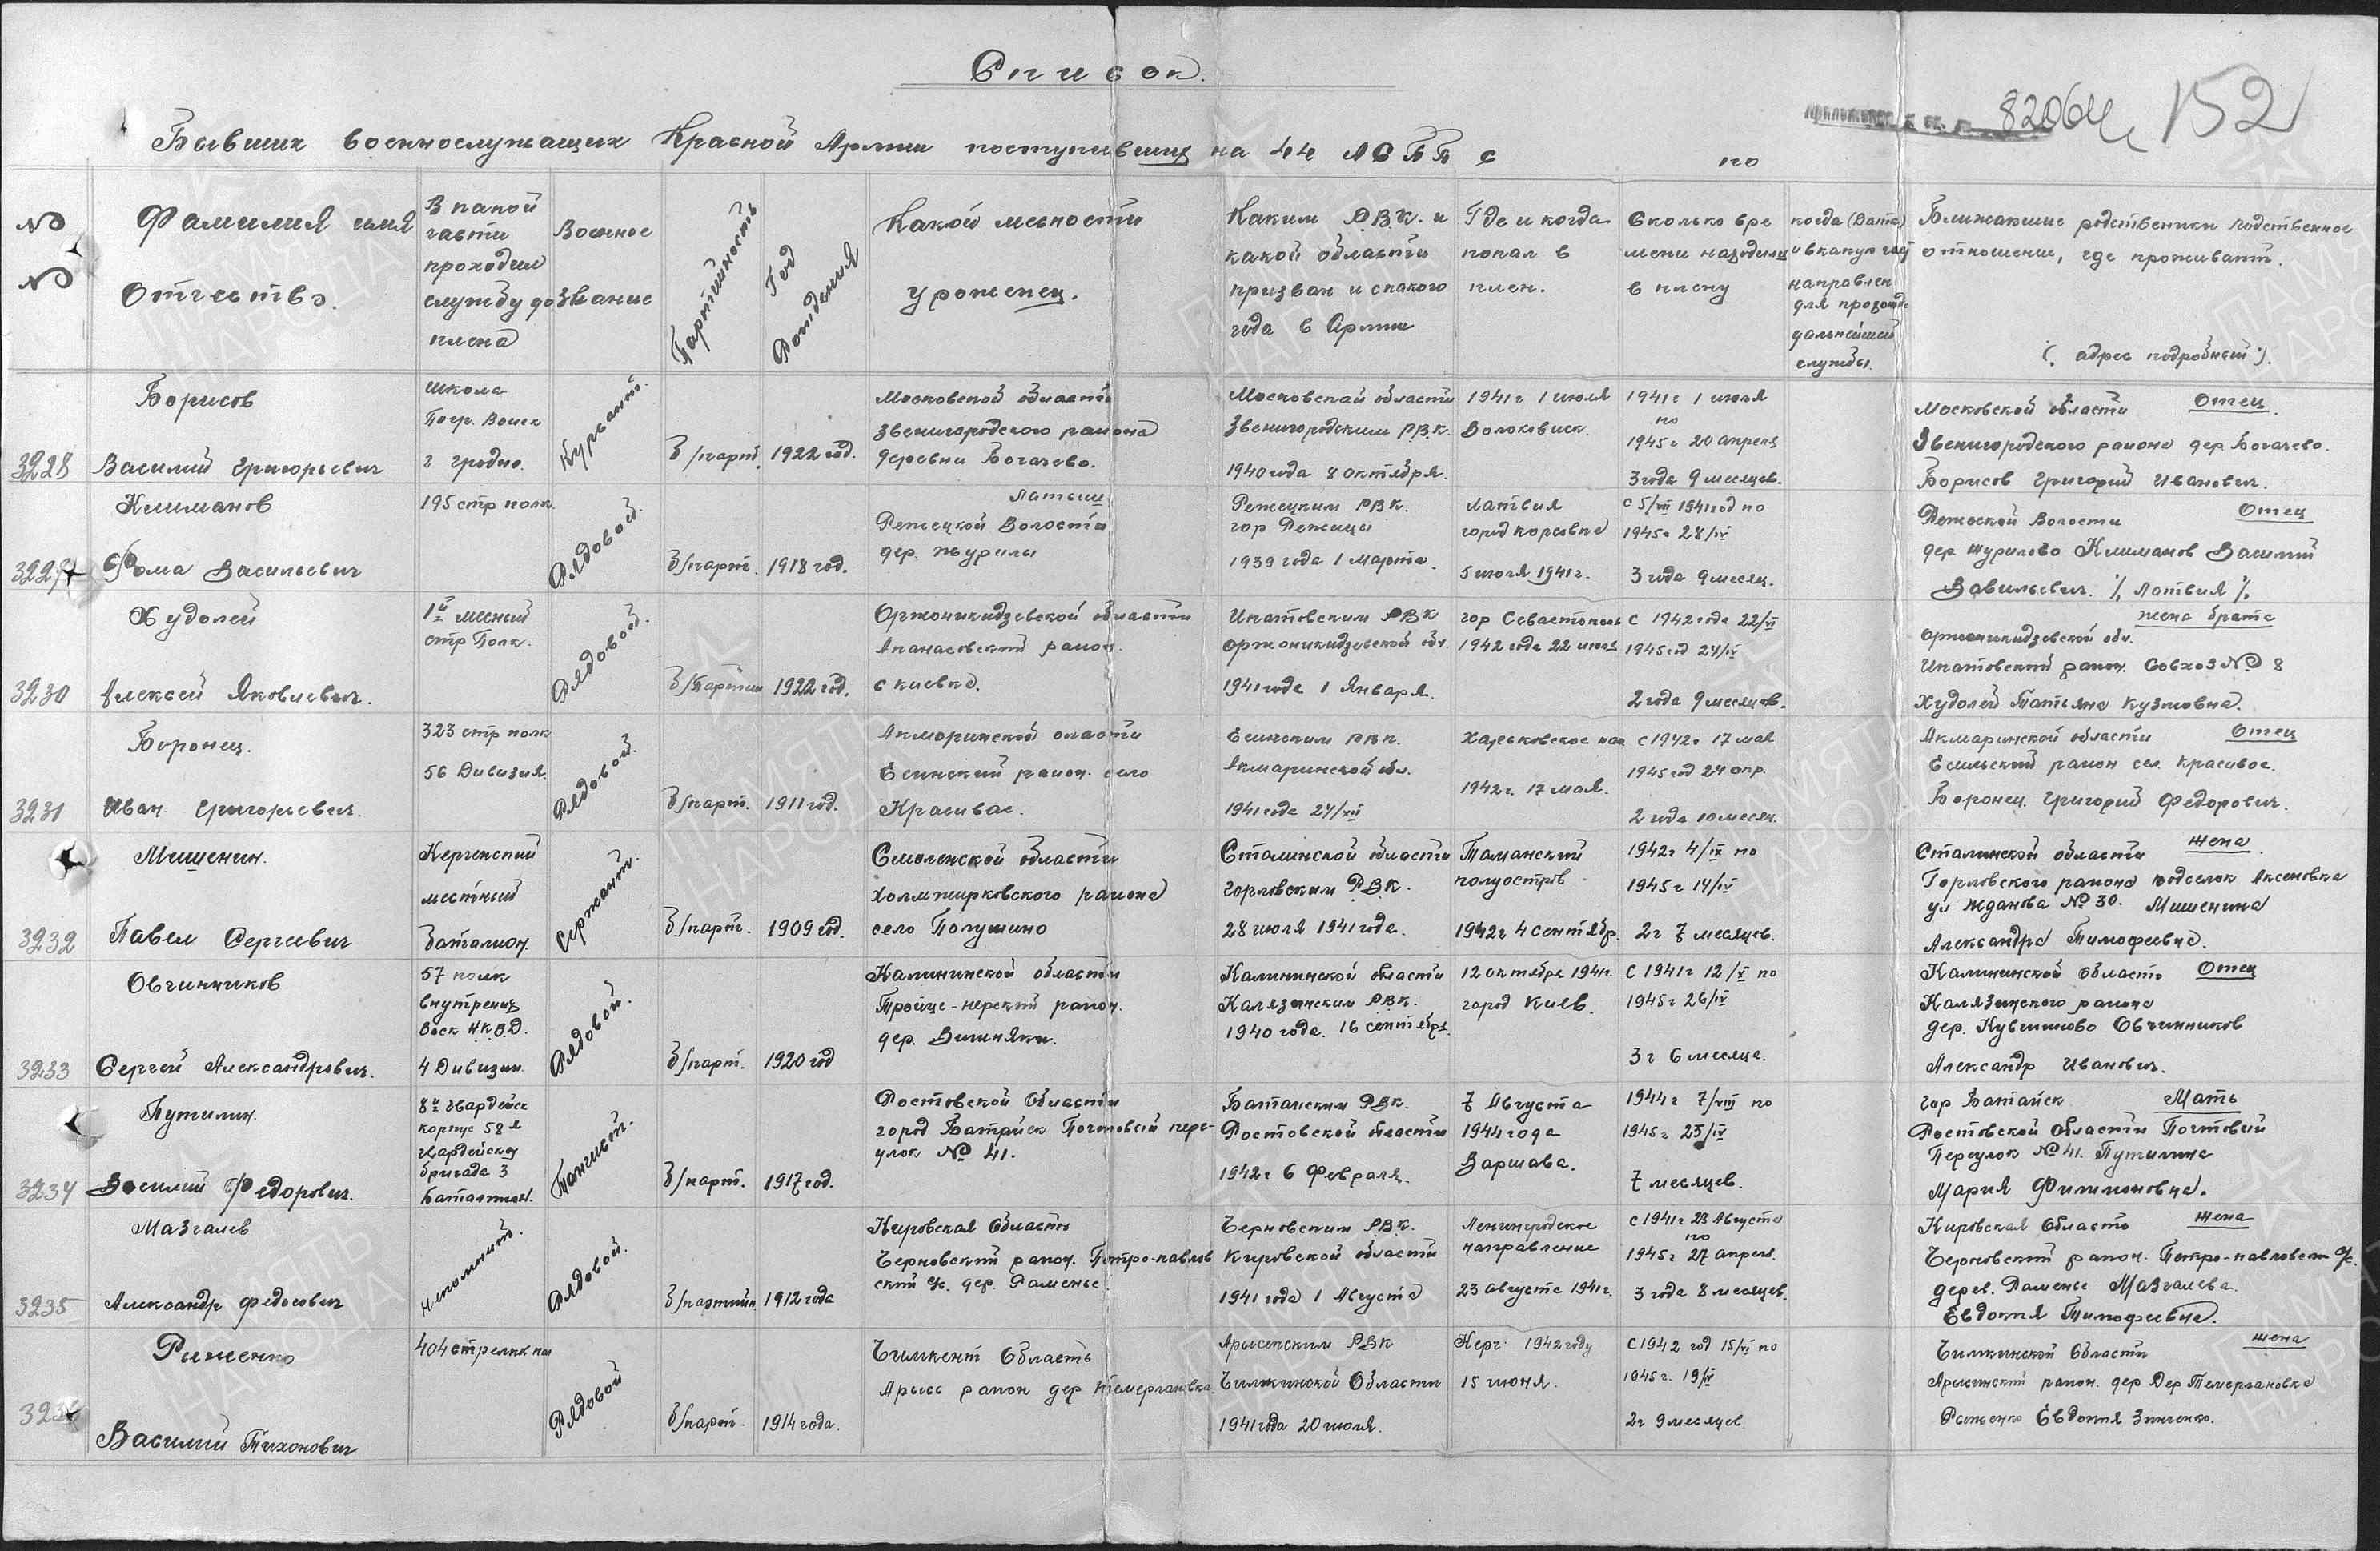 Список.
82064 152
Бывших военнослужащих Красной Армии поступивших на 44 А С П П с по
№ №
Фамилия имя
Отчество.
В какой
части
проходил
службу до
плена
Военное
звание
Партийность
Год
Рождения
Какой месности
уроженец.
Каким Р.В.К. и
какой области
призван и с какого
года в Армии
Где и когда
попал в
плен.
Сколько вре
мени находился
в плену
когда (Дата)
и в какую часть
направлен
для прохожд.
дальнейшей
службы.
Ближайшие родственики Родственное
отношение, где проживают.
(адрес подробный).
3228
Борисов
Василий Григорьевич
школа
Погр. Войск
г гродно.
Курсант.
Б/парт.
1922 год.
Московской области
Звенигородского района
деревни Богачево.
Московской области
Звенигородским Р.В.К.
1940 года 8 октября.
1941 г 1 июля
Волоковиск.
1941 г 1 июля
по
1945 г 20 апреля
3 года 9 месяцев.
Московской области Отец.
Звенигородского района дер. Богачево.
Борисов Григорий Иванович.
3229
Климанов
Фома Васильевич
195 стр полк.
Рядовой.
Б/парт.
1918 год.
Латыш
Режецкой Волости
дер. Журилы
Режецким РВК.
гор Режица
1939 года 1 Марта.
Латвия
город корсовка
5 июля 1941 г.
с 5/VII 1941 год по
1945 г 28/IV
3 года 9 месяц.
Режеской Волости Отец
дер Журилово Климанов Василий
Савильевич. /. Латвия /.
3230
Худолей
Алексей Яковлевич.
1й месный
стр Полк.
Рядовой.
Б/Партии
1922 год.
Оржоникидзевской области
Апанасовский район.
с киевка.
Ипатовским РВК
оржоникидзевской обл.
1941 года 1 Января.
гор Севастополь
1942 года 22 июля
с 1942 года 22/VII
1945 год 24/IV
2 года 9 месяцев.
жена брата
оржоникидзевской обл.
Ипатовский район. Совхоз № 8
Худолей Татьяна Кузмовна.
3231
Воронец.
Иван Григорьевич.
323 стр полк
56 Дивизия.
Рядовой.
Б/парт.
1911 год.
Акморинской оласти
Есинский район. село
Красивае.
Есинским РВК.
Акмаринской обл.
1941 года 24/VII
Харьковское нап
1942 г. 17 мая.
с 1942 г 17 мая
1945 год 24 апр.
2 года 10 месяц.
Акмаринской области Отец
Есильский район сел. красивое.
Воронец Григорий Федорович.
3232
Мишенин.
Павел Сергеевич
Керченский
местный
Баталион.
Сержант.
Б/парт.
1909 год.
Смоленской области
Холмжирковского района
село Полушино
Сталинской области
Горловским Р.В.К.
28 июля 1941 года.
Таманский
полуостров
1942 г 4 сентябр.
1942 г 4/IX по
1945 г 14/IV
2 г 7 месяцев.
Сталинской области жена.
Горловского района подселок Аксеновка
ул Жданова № 30. Мишенина
Александра Тимофеевна.
3233
Овчинников
Сергей Александрович.
57 полк
внутрених
Воск Н.К.В.Д.
4 Дивизии.
Рядовой.
Б/парт.
1920 год
Калининской области
Тройце-нерский район.
дер. Вишняки.
Калининской области
Калязинским РВК.
1940 года. 16 сентября.
12 октября 1941 г.
город Киев.
С 1941 г 12/X по
1945 г 26/IV
3 г 6 месяца.
Калининской Область Отец
Калязинского района
дер. Кувшиново Овчинников
Александр Иванович.
3234
Путилин.
Василий Федорович.
8й Гвардейск
корпус 58 я
гвардейская
бригада 3
Баталион.
Танкист.
Б/парт.
1917 год.
Ростовской Области
город Батайск Почтовый пере-
улок № 41.
Батайским РВК.
Ростовской области
1942 г 6 Февраля.
7 Августа
1944 года
Варшава.
1944 г 7/VIII по
1945 г 23/IV
7 месяцев.
гор Батайск Мать
Ростовской Области Почтовый
Переулок № 41. Путилина
Мария Филимоновна.
3235
Мазгалев
Александр Федосович
непомнит.
Рядовой.
Б/партийн.
1912 года
Кировская Область
Черновский район. Петро-павлов
ский с/с. дер. Раменье.
Черновским РВК.
Кировской области
1941 года 1 Августа
Ленингродское
направление
23 Августа 1941 г.
с 1941 г 23 Августа
по
1945 г 27 апреля.
3 года 8 месяцев.
Кировская Область жена
Черновский район. Петро-павловск с/с.
дерев. Раменье Мазгалева.
Евдокия Тимофеевна.
3236
Рыженко
Василий Тихонович
404 стрелк пол
Рядовой
Б/парт.
1914 года.
Чимкент Область
Арысс район дер Темерлановка.
Арысским РВК
Чимкинской Области
1941 года 20 июля.
Керч 1942 году
15 июня.
С 1942 год 15/VI по
1945 г. 19/IV
2 г 9 месяцев
Чимкинской Области жена
Арысинский район. дер Дер Темерлановка
Рыженко Евдокия Зинченко.